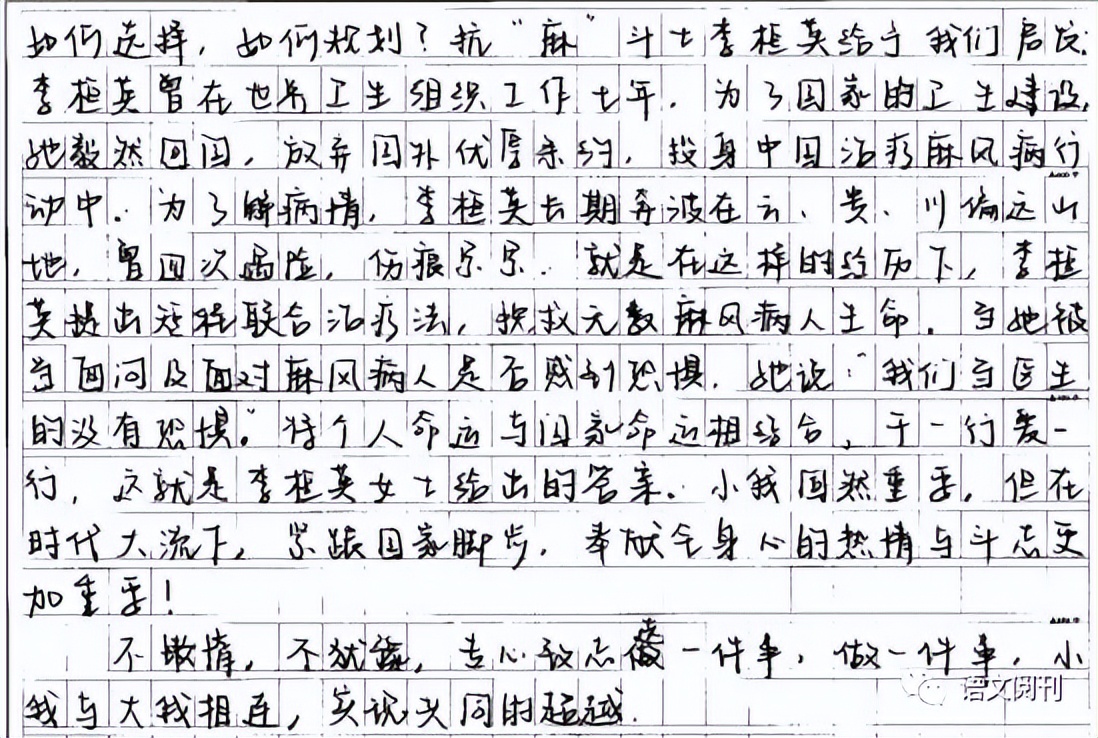 如何选择，如何规划？抗“麻”斗士李桓英给予我们启发.
李桓英曾在世界卫生组织工作七年，为了国家的卫生建设，
她毅然回国，放弃国外优厚条约，投身中国治疗麻风病行
动中。为了解病情，李桓英长期奔波在云、贵、川偏远山
地，曾四次遇险，伤痕累累。就是在这样的经历下，李桓
英提出短程联合治疗法，拯救无数麻风病人生命。当她被
当面问及面对麻风病人是否感到恐惧，她说：“我们当医生
的没有恐惧。”将个人命运与国家命运相结合，干一行爱一
行，这就是李桓英女士给出的答案。小我固然重要，但在
时代大流下，紧跟国家脚步，奉献全身心的热情与斗志更
加重要！
不懒惰，不犹豫，专心致志做一件事，做一件事，小
我与大我相连，实现共同的超越.
语文阅刊